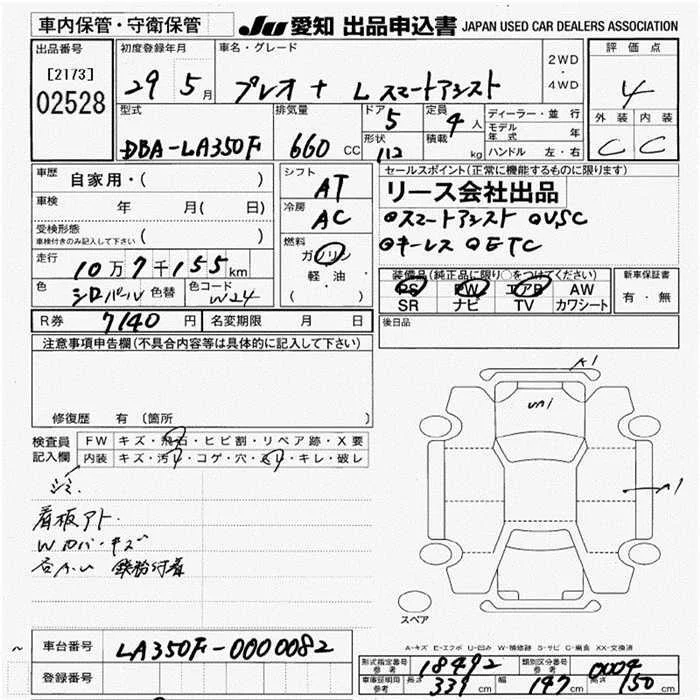 車内保管・守衛保管
JU 愛知 出品申込書 JAPAN USED CAR DEALERS ASSOCIATION
出品番号
[2173]
02528
初度登録年月
29 5月
車名・グレード
プレオ + L スマートアシスト
2WD
・
4WD
評価点
4
外装 内装
C C
型式
DBA-LA350F
排気量
660 CC
ドア 5
形状
定員 4人
積載 kg
ディーラー・並行
モデル年式 年
ハンドル 左・右
車歴
自家用・( )
車検
年 月( 日)
受検形態
車検付きのみ記入して下さい ( )
走行
10万7千155km
色 シロパール 色替
色コード W24
シフト
AT
冷房
AC
燃料
ガソリン
軽・油
( )
セールスポイント(正常に機能するものに限ります)
リース会社出品
◎スマートアシスト ◎VSC
◎キーレス ◎ETC
装備品(純正品に限り○をつけてください)
PS PW エアB AW
SR ナビ TV カワシート
新車保証書
有・無
R券 7140円
名変期限 月 日
後日品
注意事項申告欄(不具合内容等は具体的に記入して下さい)
修復歴 有 (箇所
検査員
記入欄
FW キズ・飛石・ヒビ割・リペア跡・X要
内装 キズ・汚レ・コゲ・穴・スレ・キレ・破レ
シミ
看板アト.
Wカバーキズ
A1
UA1
A1
スペア
A-キズ E-エクボ U-凹み W-補修跡 S-サビ C-腐食 XX-交換済
車台番号 LA350F-0000082
登録番号
型式指定番号
参考
18492
類別区分番号
参考
0004
車庫証明用
参考
長さ 339 cm
幅 147 cm
高さ 150 cm